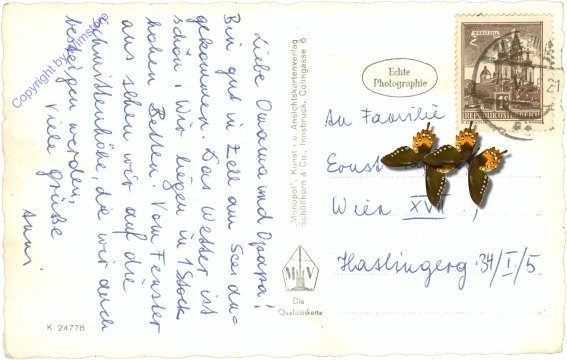 Liebe Omama und Opapa!
Bin gut in Zell am See an=
gekommen. Das Wetter ist
schön. Wir liegen in 1 Stock.
hohen Betten. Vom Fenster
aus sehen wir auf die
Schmittenhöhe, die wir auch
besteigen werden,
Viele Grüße
Anni
Copyright by Wimstop
K 24778
"Monopol", Kunst- u. Ansichtskartenverlag
Schöllhorn & Co., Innsbruck, Colingasse 6
M V
Die
Qualitätskarte
Echte
Photographie
REPUBLIK ÖSTERREICH
An Familie
Ernst
Wien XVII,
Haslingerg. 34/I/5